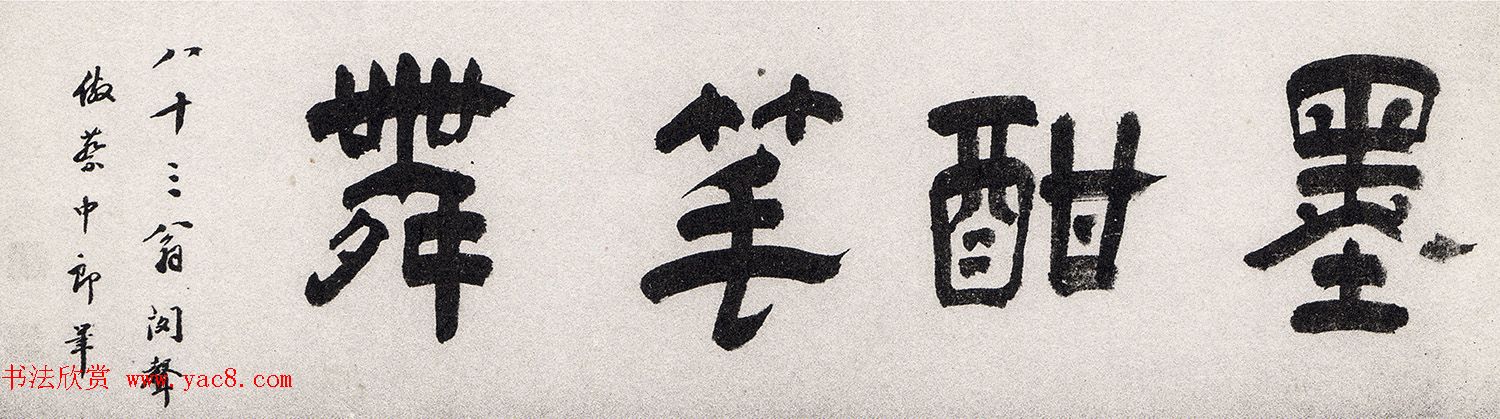 墨酣笔舞
八十三翁閣聲
倣蔡中郎筆
书法欣赏 www.yac8.com